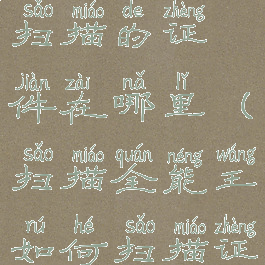 sǎo miáo de zhèng
扫描的证
jiàn zài nǎ lǐ
件在哪里（
sǎo miáo quán néng wáng
扫描全能王
rú hé sǎo miáo zhèng
如何扫描证